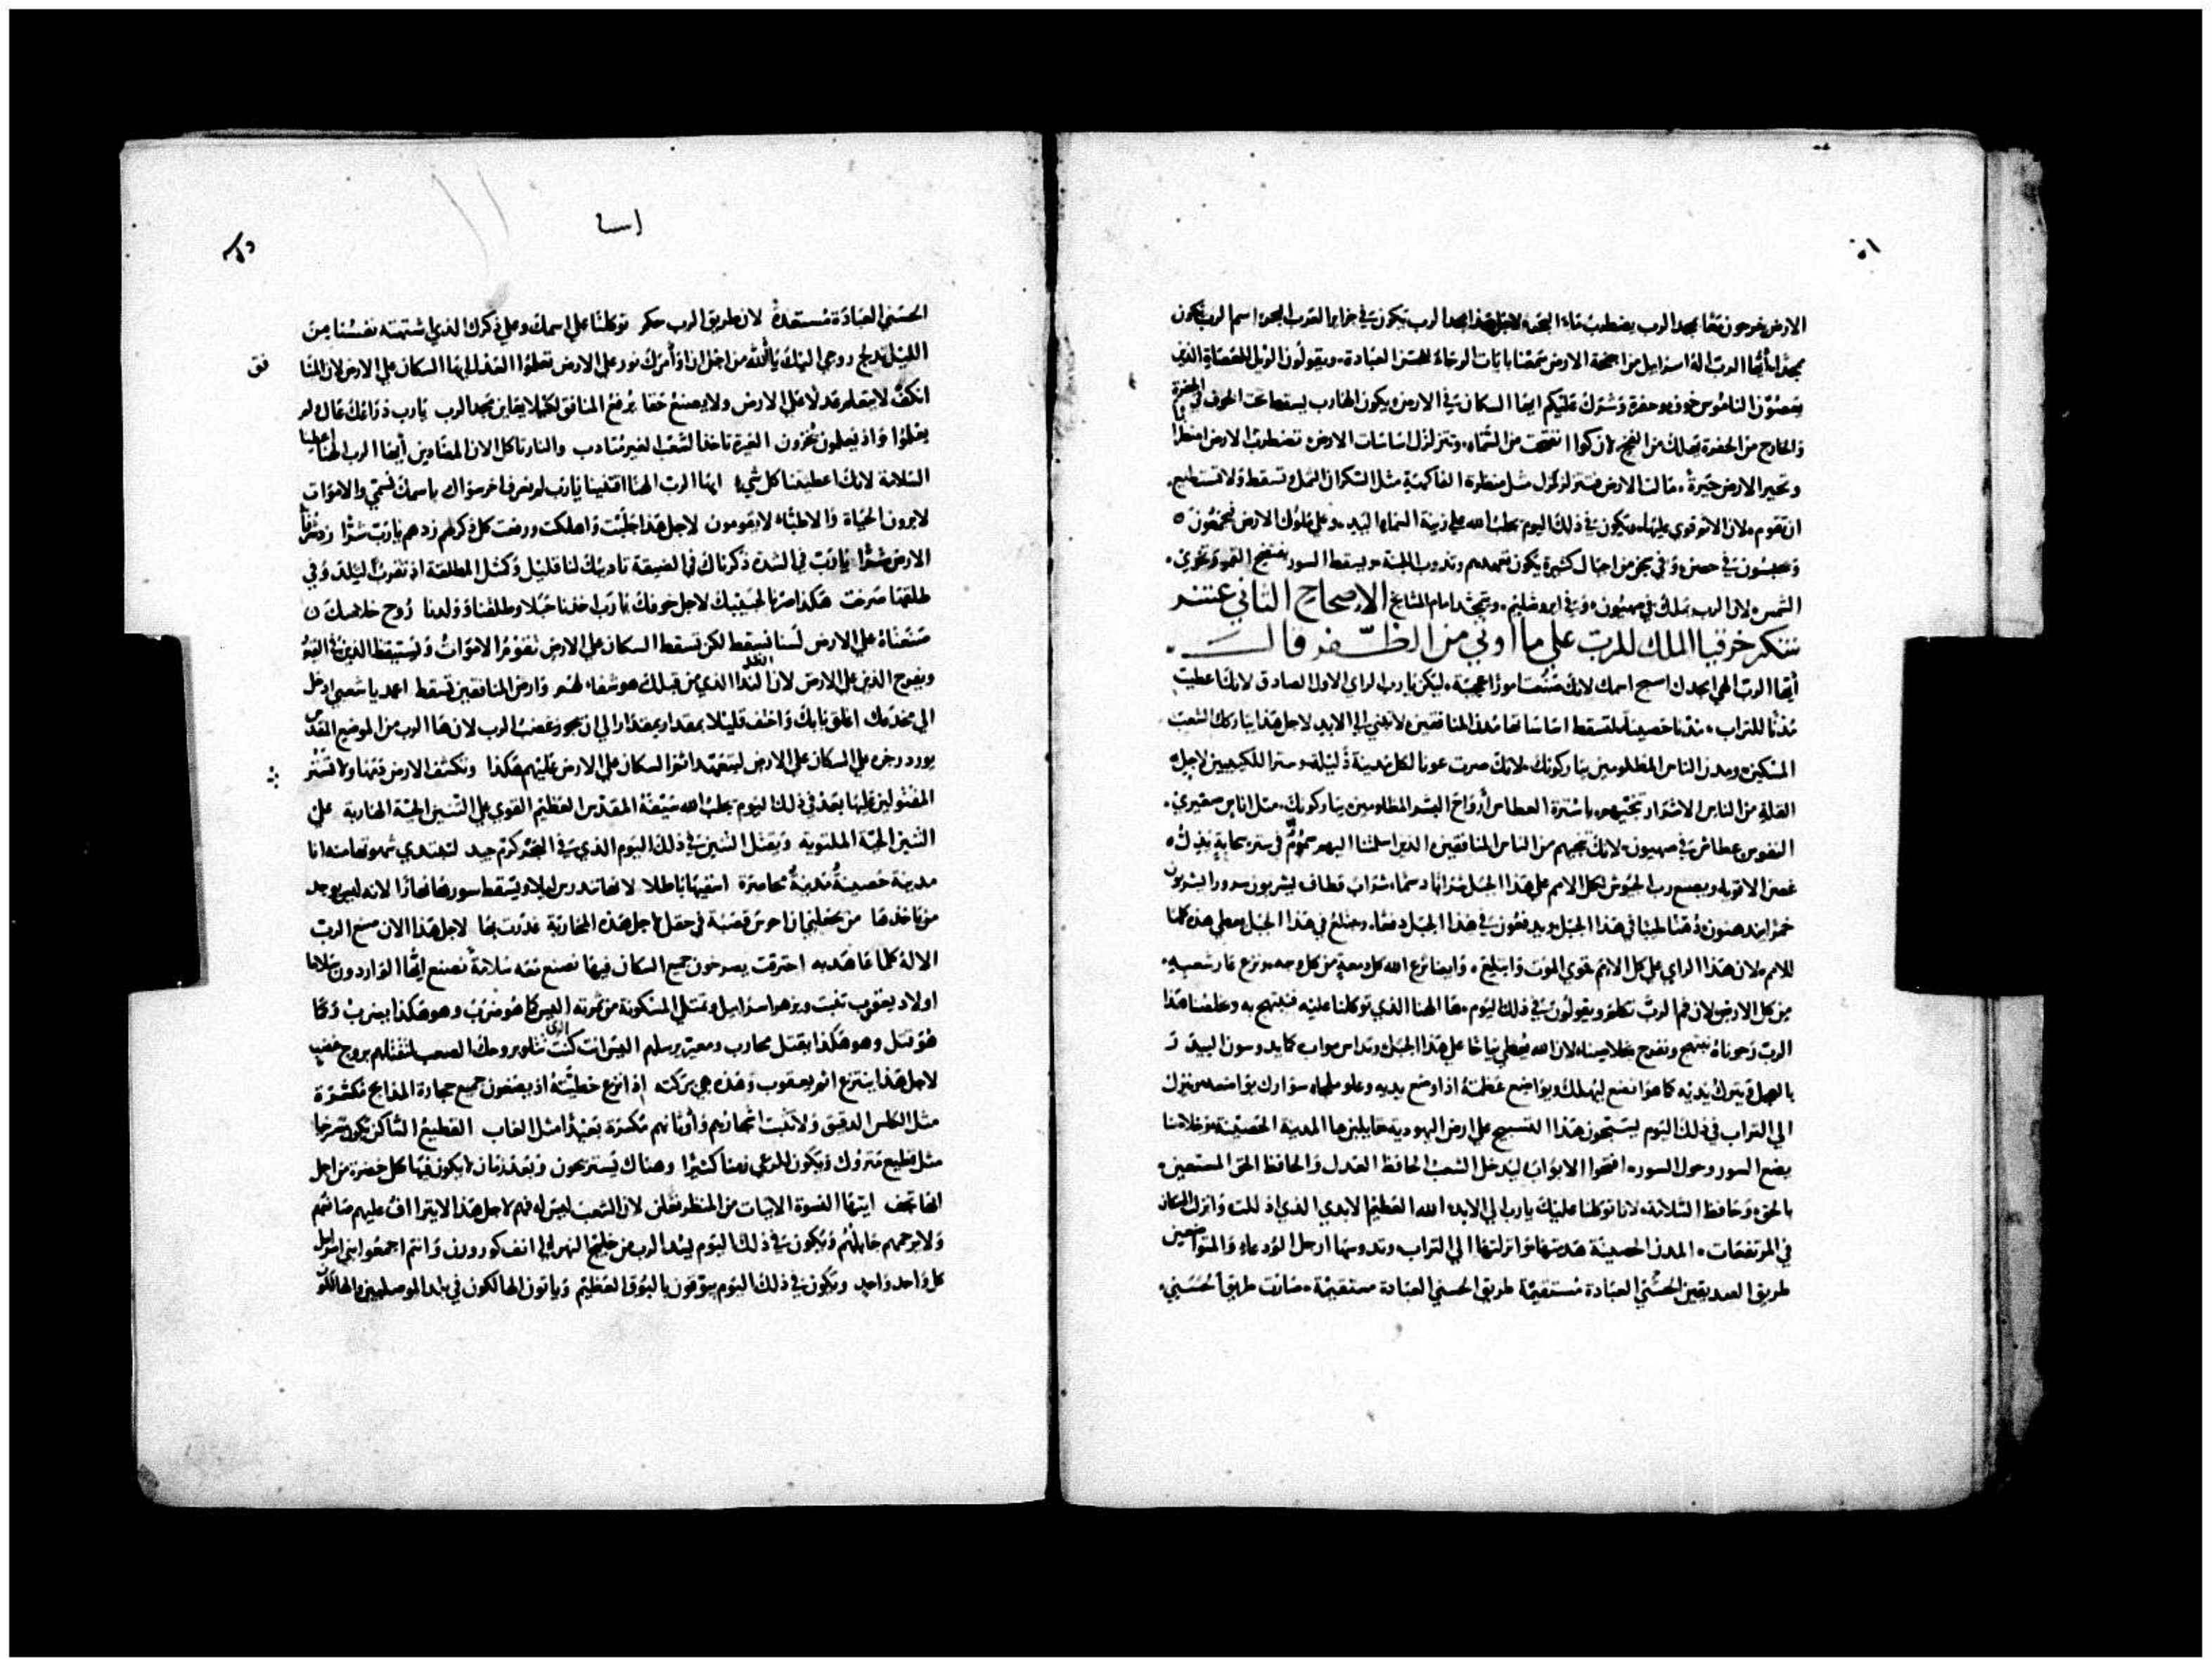 الارض يفرحون معا بمجد الرب يضطرب ماء البحر لاجل هذا مجد الرب يكون في جزاير القرب البحر اسم الرب يكون
مجدا ايها الرب اله اسراييل من اجنحة الارض سمعنا بايات الرجاء للحسن العبادة ويقولون الويل للعصاة الذين
يعصون الناموس خوف وحفرة وشرك عليكم ايها السكان في الارض ويكون الهارب يسقط تحت الخوف الي الحفرة
والخارج من الحفرة يهلك من الفخ لان كوا انفتحت من السماء وتتزلزل اساسات الارض تضطرب الارض اضطرابا
وتحير الارض حيرة مالت الارض وتتزلزل مثل منطرة الفاكهية مثل السكران الثمل تسقط ولا تستطيع
ان تقوم لان الاثم قوي عليها ويكون في ذلك اليوم يجلب الله علي زينة السماء اليد وعلي ملوك الارض فيجمعون
ويحبسون في حصن وفي سجن من اجيال كثيرة يكون تعهدهم وتدوب اللبنة ويسقط السور يفتضح القمر وتخزي
الشمس لان الرب يملك في صهيون وفي ايروشليم ويتمجد امام المشايخ الاصحاح الثاني عشر
شكر حزقيا الملك للرب علي ما اوتي من الظفر قال
ايها الرب الهي امجدك اسبح اسمك لانك صنعت امورا عجيبة ليكن يا رب الراي الاول الصادق لانك اعطيت
مدنا للتراب مدنا حصينة لتسقط اساساتها مدن المنافقين لا تبني الي الابد لاجل هذا يباركك الشعب
المسكين ومدن الناس المظلومين يباركونك لانك صرت عونا لكل مدينة ذليلة وسترا للكييبين لاجل
القلة من الناس الاشرار تنجيهم يا سترة العطاش وارواح البشر المظلومين يباركونك مثل اناس صغيري
النفوس عطاش في صهيون لانك تنجيهم من الناس المنافقين الذين اسلمتنا اليهم
غصن الاقويا ويصنع رب الجيوش لكل الامم علي هذا الجبل شرابا دسما شراب قطاف يشربون سرورا يشربون
خمرا يدهنون دهنا طيبا في هذا الجبل ويدفعون في هذا الجبل دفعا ويخلع في هذا الجبل يعطي هذه كلها
للامم لان هذا الراي علي كل الامم تقوي الموت وابتلع وايضا نزع الله كل دمعة من كل وجه ونزع عار شعبه
من كل الارض لان فم الرب تكلم ويقولون في ذلك اليوم ها الهنا الذي توكلنا عليه فنبتهج به وخلصنا هذا
الرب رجوناه نبتهج ونفرح بخلاصنا لان الله يعطي نياحا علي هذا الجبل وتداس مواب كما يدوسون البيدر
بالعجل يترك يديه كما هو اتضع ليهلك ويواضع عظمته اذا وضع يديه وعلو ملجاء سوارك يواضعه وينزل
الي التراب في ذلك اليوم يسبحون هذا التسبيح علي ارض اليهودية قايلين ها المدينة الحصينة وخلاصنا
يضع السور وحول السور افتحوا الابواب ليدخل الشعب الحافظ العدل والحافظ الحق المستعين
بالحق وحافظ السلامة لانا توكلنا عليك يا رب الي الابد الله العظيم الابدي الذي اذللت وانزلت السكان
في المرتفعات المدن الحصينة هدمتها وانزلتها الي التراب وتدوسها ارجل الودعاء والمتواضعين
طريق الصديقين الحسني العبادة مستقيمة طريق الحسني العبادة مستقيمة صارت طريق الحسني
اسا
الحسني العبادة مستعدة لان طريق الرب حكم توكلنا علي اسمك وعلي ذكرك الذي اشتهته نفسنا من
الليل تدلج روحي اليك يا الله من اجل ان اوامرك نور علي الارض تعلموا العدل ايها السكان علي الارض لان المنا
فق
انكف لا يتعلم عدلا علي الارض ولا يصنع حقا يرفع المنافق لكيلا يعاين مجد الرب يا رب ذراعك عال ولم
يعلموا واذ يعلمون يخزون الغيرة تاخذ الشعب الغير متادب والنار تاكل الان المضادين ايها الرب الهنا اعطينا
السلامة لانك اعطيتنا كل شيء ايها الرب الهنا اقتنينا يا رب لم نعرف اخر سواك باسمك نسمي والاموات
لا يرون الحياة والاطباء لا يقومون لاجل هذا جلبت واهلكت ورفعت كل ذكرهم زدهم يا رب شرا زد شرفا
الارض شرا يا رب في الشدة ذكرناك في الضيقة تاديبك لنا قليل وكمثل المطلقة اذ تقرب لتلد وفي
طلقها صرخت هكذا صرنا لحبيبك لاجل خوفك يا رب اخذنا حبلا وطلقنا وولدنا روح خلاصك
صنعناه علي الارض لسنا نسقط لكن تسقط السكان علي الارض تقوم الاموات وتستيقظ الذين في القبور
ويفرح الذين علي الارض لان الندا الذي من قبلك هو شفاء لهم وارض المنافقين تسقط اعمد يا شعبي ادخل
الي مخدعك اغلق بابك واختف قليلا بمقدار بمقدار الي ان يجوز غضب الرب لان ها الرب من الموضع المقدس
يورد رجزه علي السكان علي الارض ليتعهد اثم السكان علي الارض عليهم هكذا وتكشف الارض دمها ولا تستر
المقتولين عليها بعد في ذلك اليوم يجلب الله سيفه المقدس العظيم القوي علي التنين الحية الهاربة علي
التنين الحية الملتوية ويقتل التنين في ذلك اليوم الذي في البحر كرم جيد
مدينة حصينة مدينة محاصرة اسقيها باطلا لانها تدرس ليلا ويسقط سورها نهارا لانه ليس يوجد
من ياخذها من يجعلني ان احرس قصبة في حقل لاجل هذه المحاربة غدرت بها لاجل هذا الان صنع الرب
الاله كلما عاهد به احترقت يصرخون جميع السكان فيها نصنع معه سلامة نصنع ايها الواردون سلاما
اولاد يعقوب تنبت ويزهر اسراييل وتمتلي المسكونة من ثمرته اليس كما هو ضرب وهو هكذا يضرب وكما
هو قتل وهو هكذا يقتل محارب ومعير يرسلهم اليس انت كنت الذي تتلو بروحك الصعب لتقتلهم بروح غضب
لاجل هذا ينتزع اثم يعقوب وهذه هي بركته اذ انزع خطيته اذ يضعون جميع حجارة المذابح مكسرة
مثل الكلس الدقيق ولا تثبت اشجارهم واوثانهم مكسرة بعيدا مثل الغاب القطيع الساكن يكون مسرحا
مثل قطيع متروك ويكون للمرعي زمنا كثيرا وهناك يستريحون وبعد زمان لا يكون فيها كل خضرة من اجل
انها تجف ايتها النسوة الاتيات من المنظر تعلن لان الشعب ليس له فهم لاجل هذا لا يتراف عليهم صانعهم
ولا يرحمهم جابلهم ويكون في ذلك اليوم يسد الرب من خليج النهر الي انف كورورن وانتم اجمعوا بني اسراييل
كل واحد واحد ويكون في ذلك اليوم يبوقون بالبوق العظيم وياتون الهالكون في بلد الموصليين والهالكون